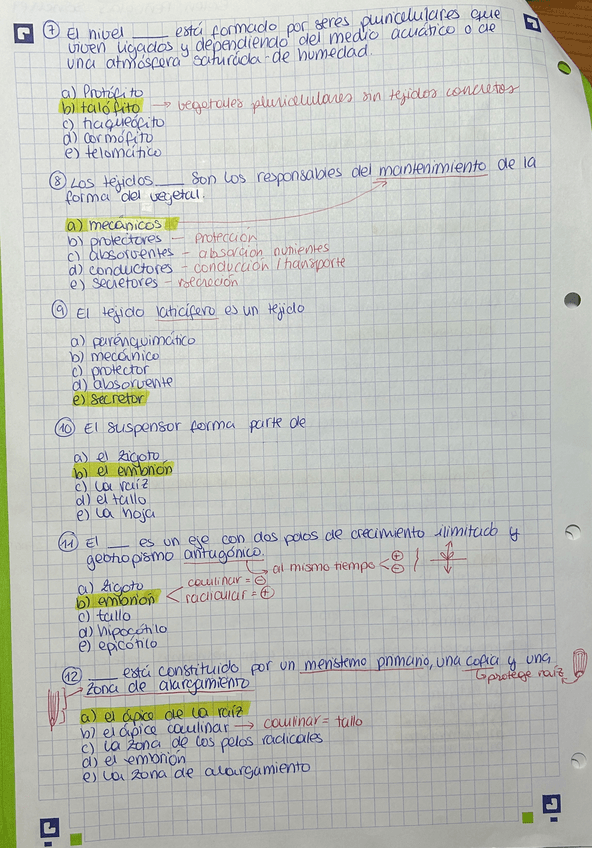 ⑦ El nivel ____ está formado por seres pluricelulares que
viven ligados y dependiendo del medio acuático o de
una atmósfera saturada de humedad.
a) Protófito
b) talófito → vegetales pluricelulares sin tejidos concretos
c) traqueófito
d) cormófito
e) telomático
⑧ Los tejidos ____ son los responsables del mantenimiento de la
forma del vegetal.
a) mecánicos
b) protectores - Protección
c) absorventes - absorción nutrientes
d) conductores - conducción / transporte
e) secretores - secreción
⑨ El tejido laticífero es un tejido
a) parénquimático
b) mecánico
c) protector
d) absorvente
e) secretor
⑩ El suspensor forma parte de
a) el zigoto
b) el embrión
c) la raíz
d) el tallo
e) la hoja
⑪ El ___ es un eje con dos polos de crecimiento ilimitado y
geotropismo antagónico.
al mismo tiempo < + -
a) zigoto
b) embrión < caulinar = - radicular = +
c) tallo
d) hipocótilo
e) epicótilo
⑫ ____ está constituido por un meristemo primario, una copia y una
zona de alargamiento
protege raíz
a) el ápice de la raíz
b) el ápice caulinar → caulinar = tallo
c) la zona de los pelos radicales
d) el embrión
e) la zona de alargamiento